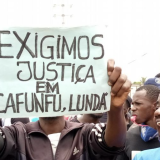 EXIGIMOS
JUSTIÇA
EM
CAFUNFU, LUNDA